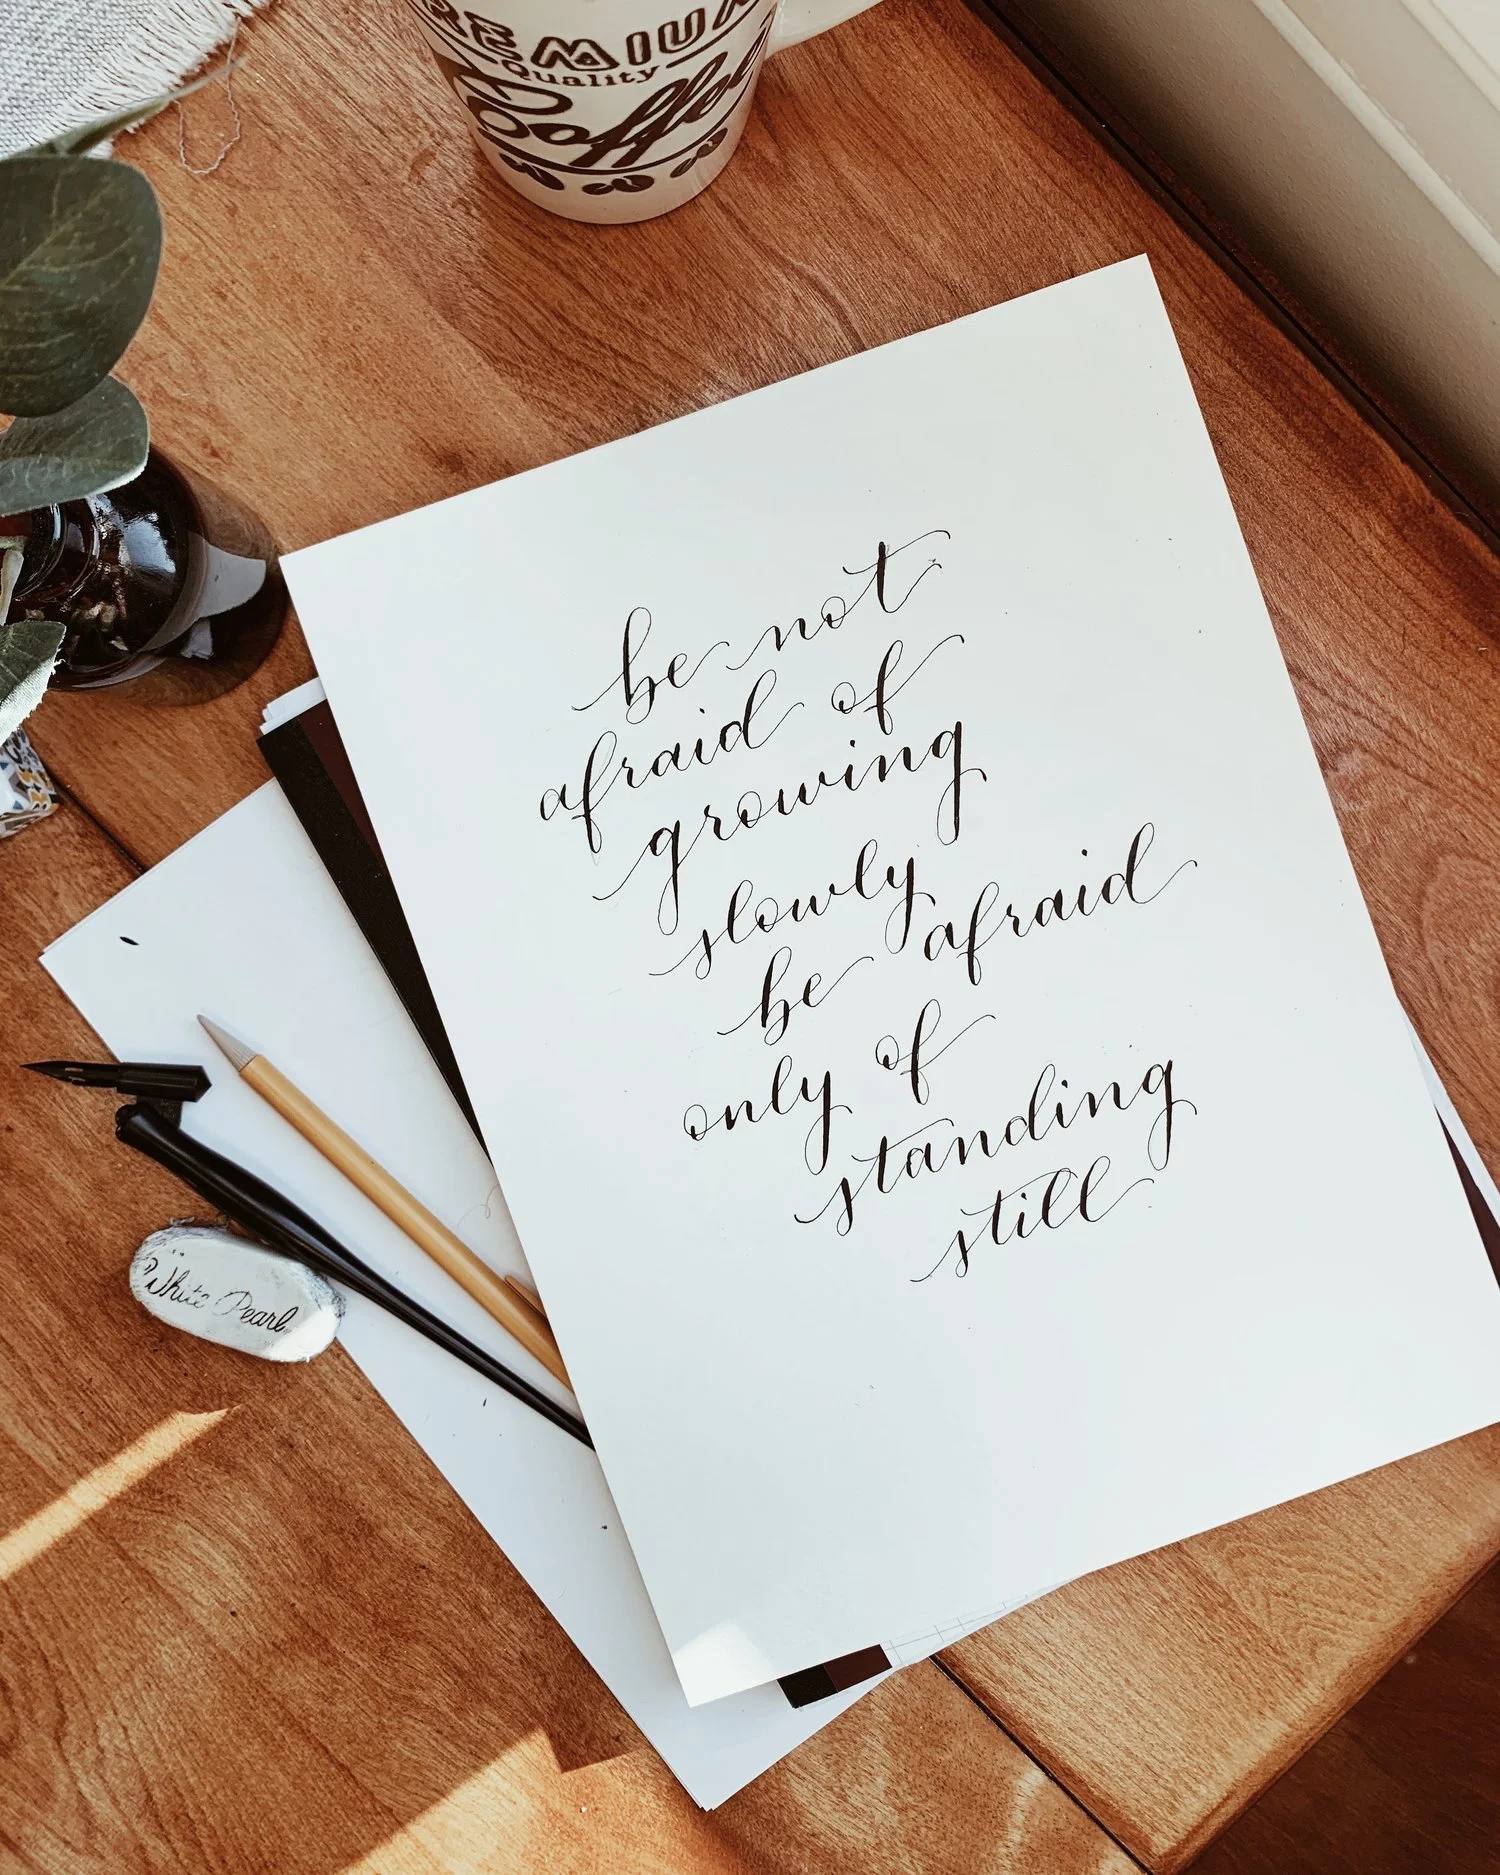 REMIUM
Quality
Coffee
be not
afraid of
growing
slowly
be afraid
only of
standing
still
White Pearl